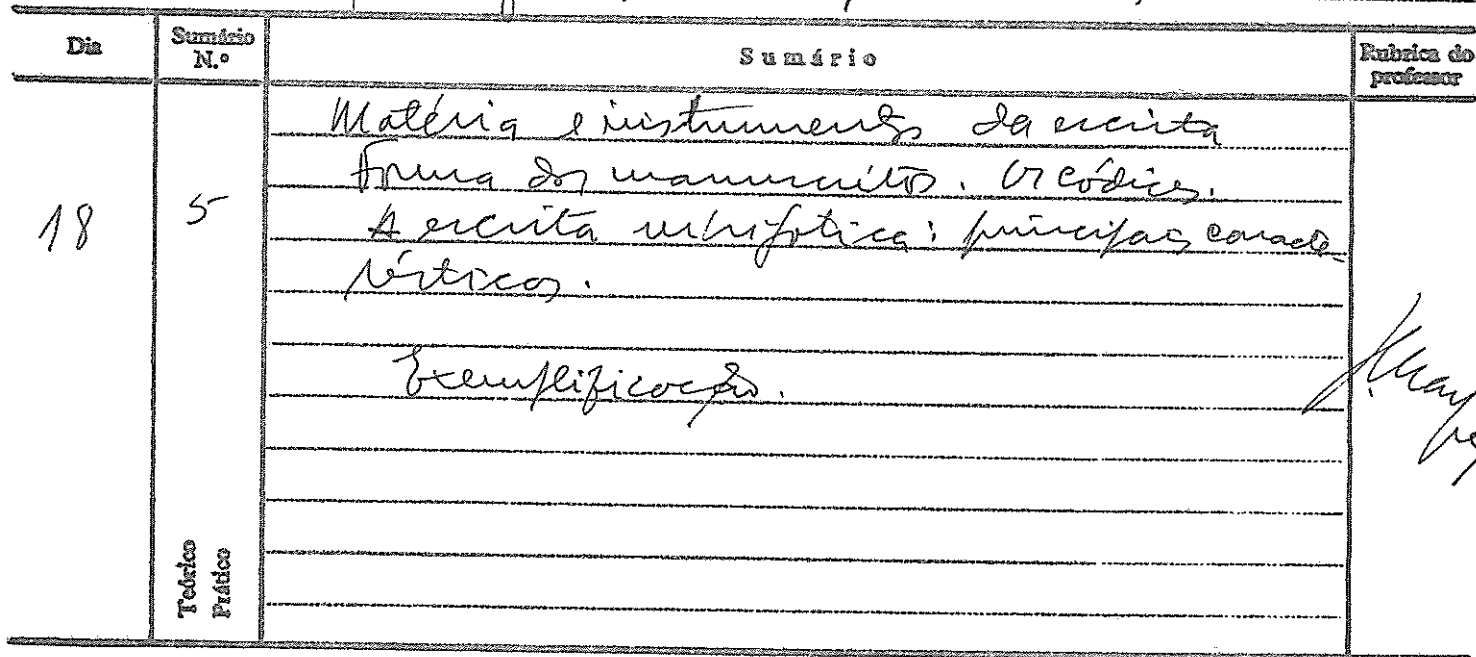 Dia
Sumário N.º
Sumário
Rubrica do professor
18
5
Matéria e instrumentos da escrita
Forma dos manuscritos. Os códices.
A escrita visigótica: principais caracte-
rísticas.
Exemplificação.
Teórico
Prático